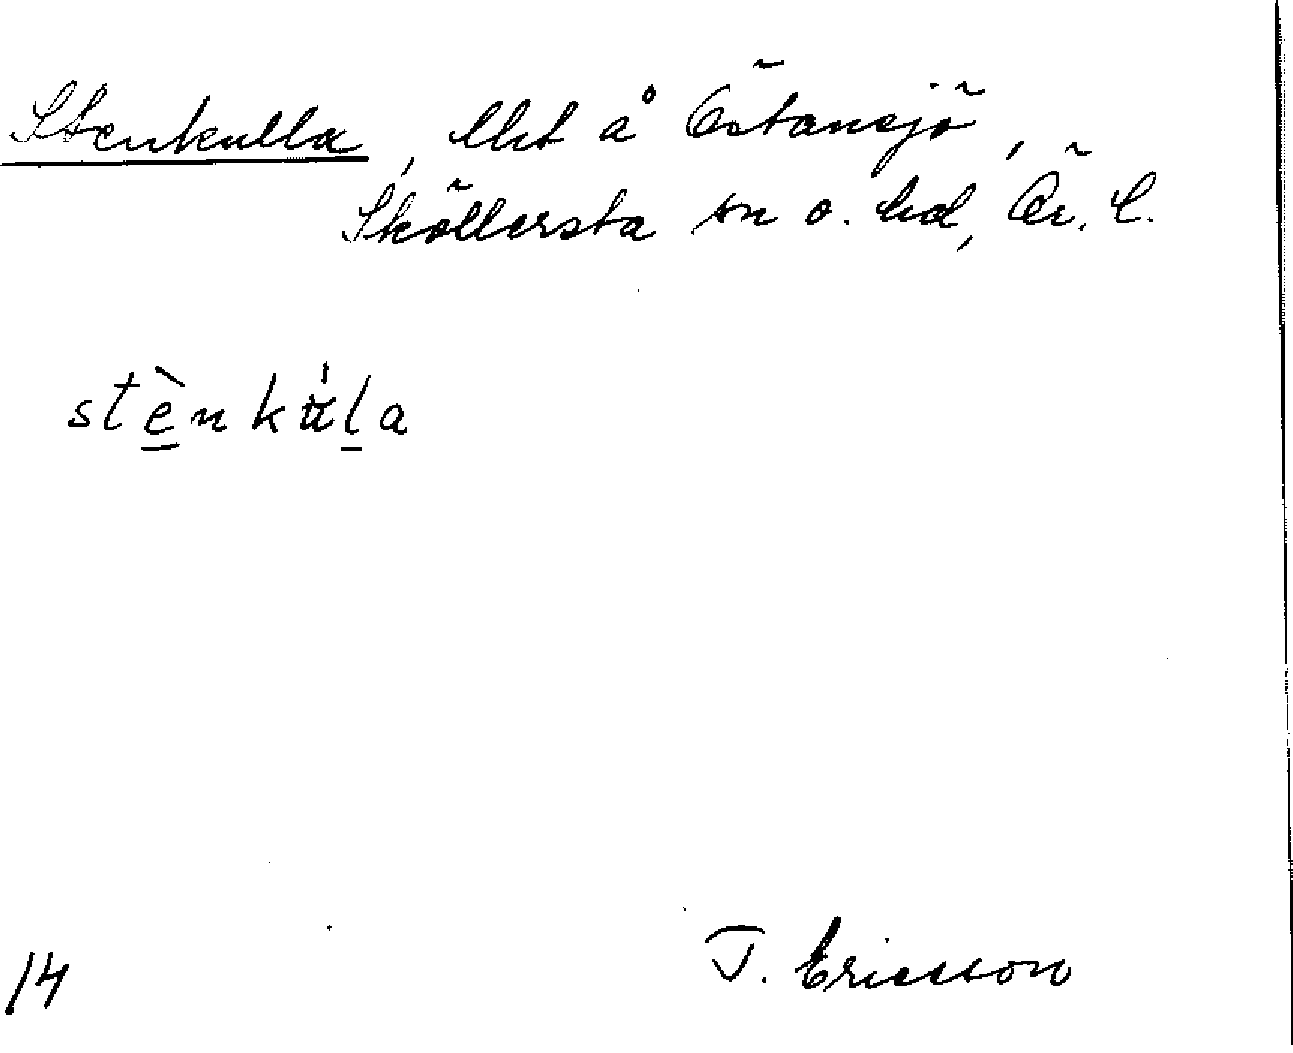 Stenkulla, lht å Östansjö,
Sköllersta sn o. hd, Ör. l.
stènkúla
14
T. Ericsson